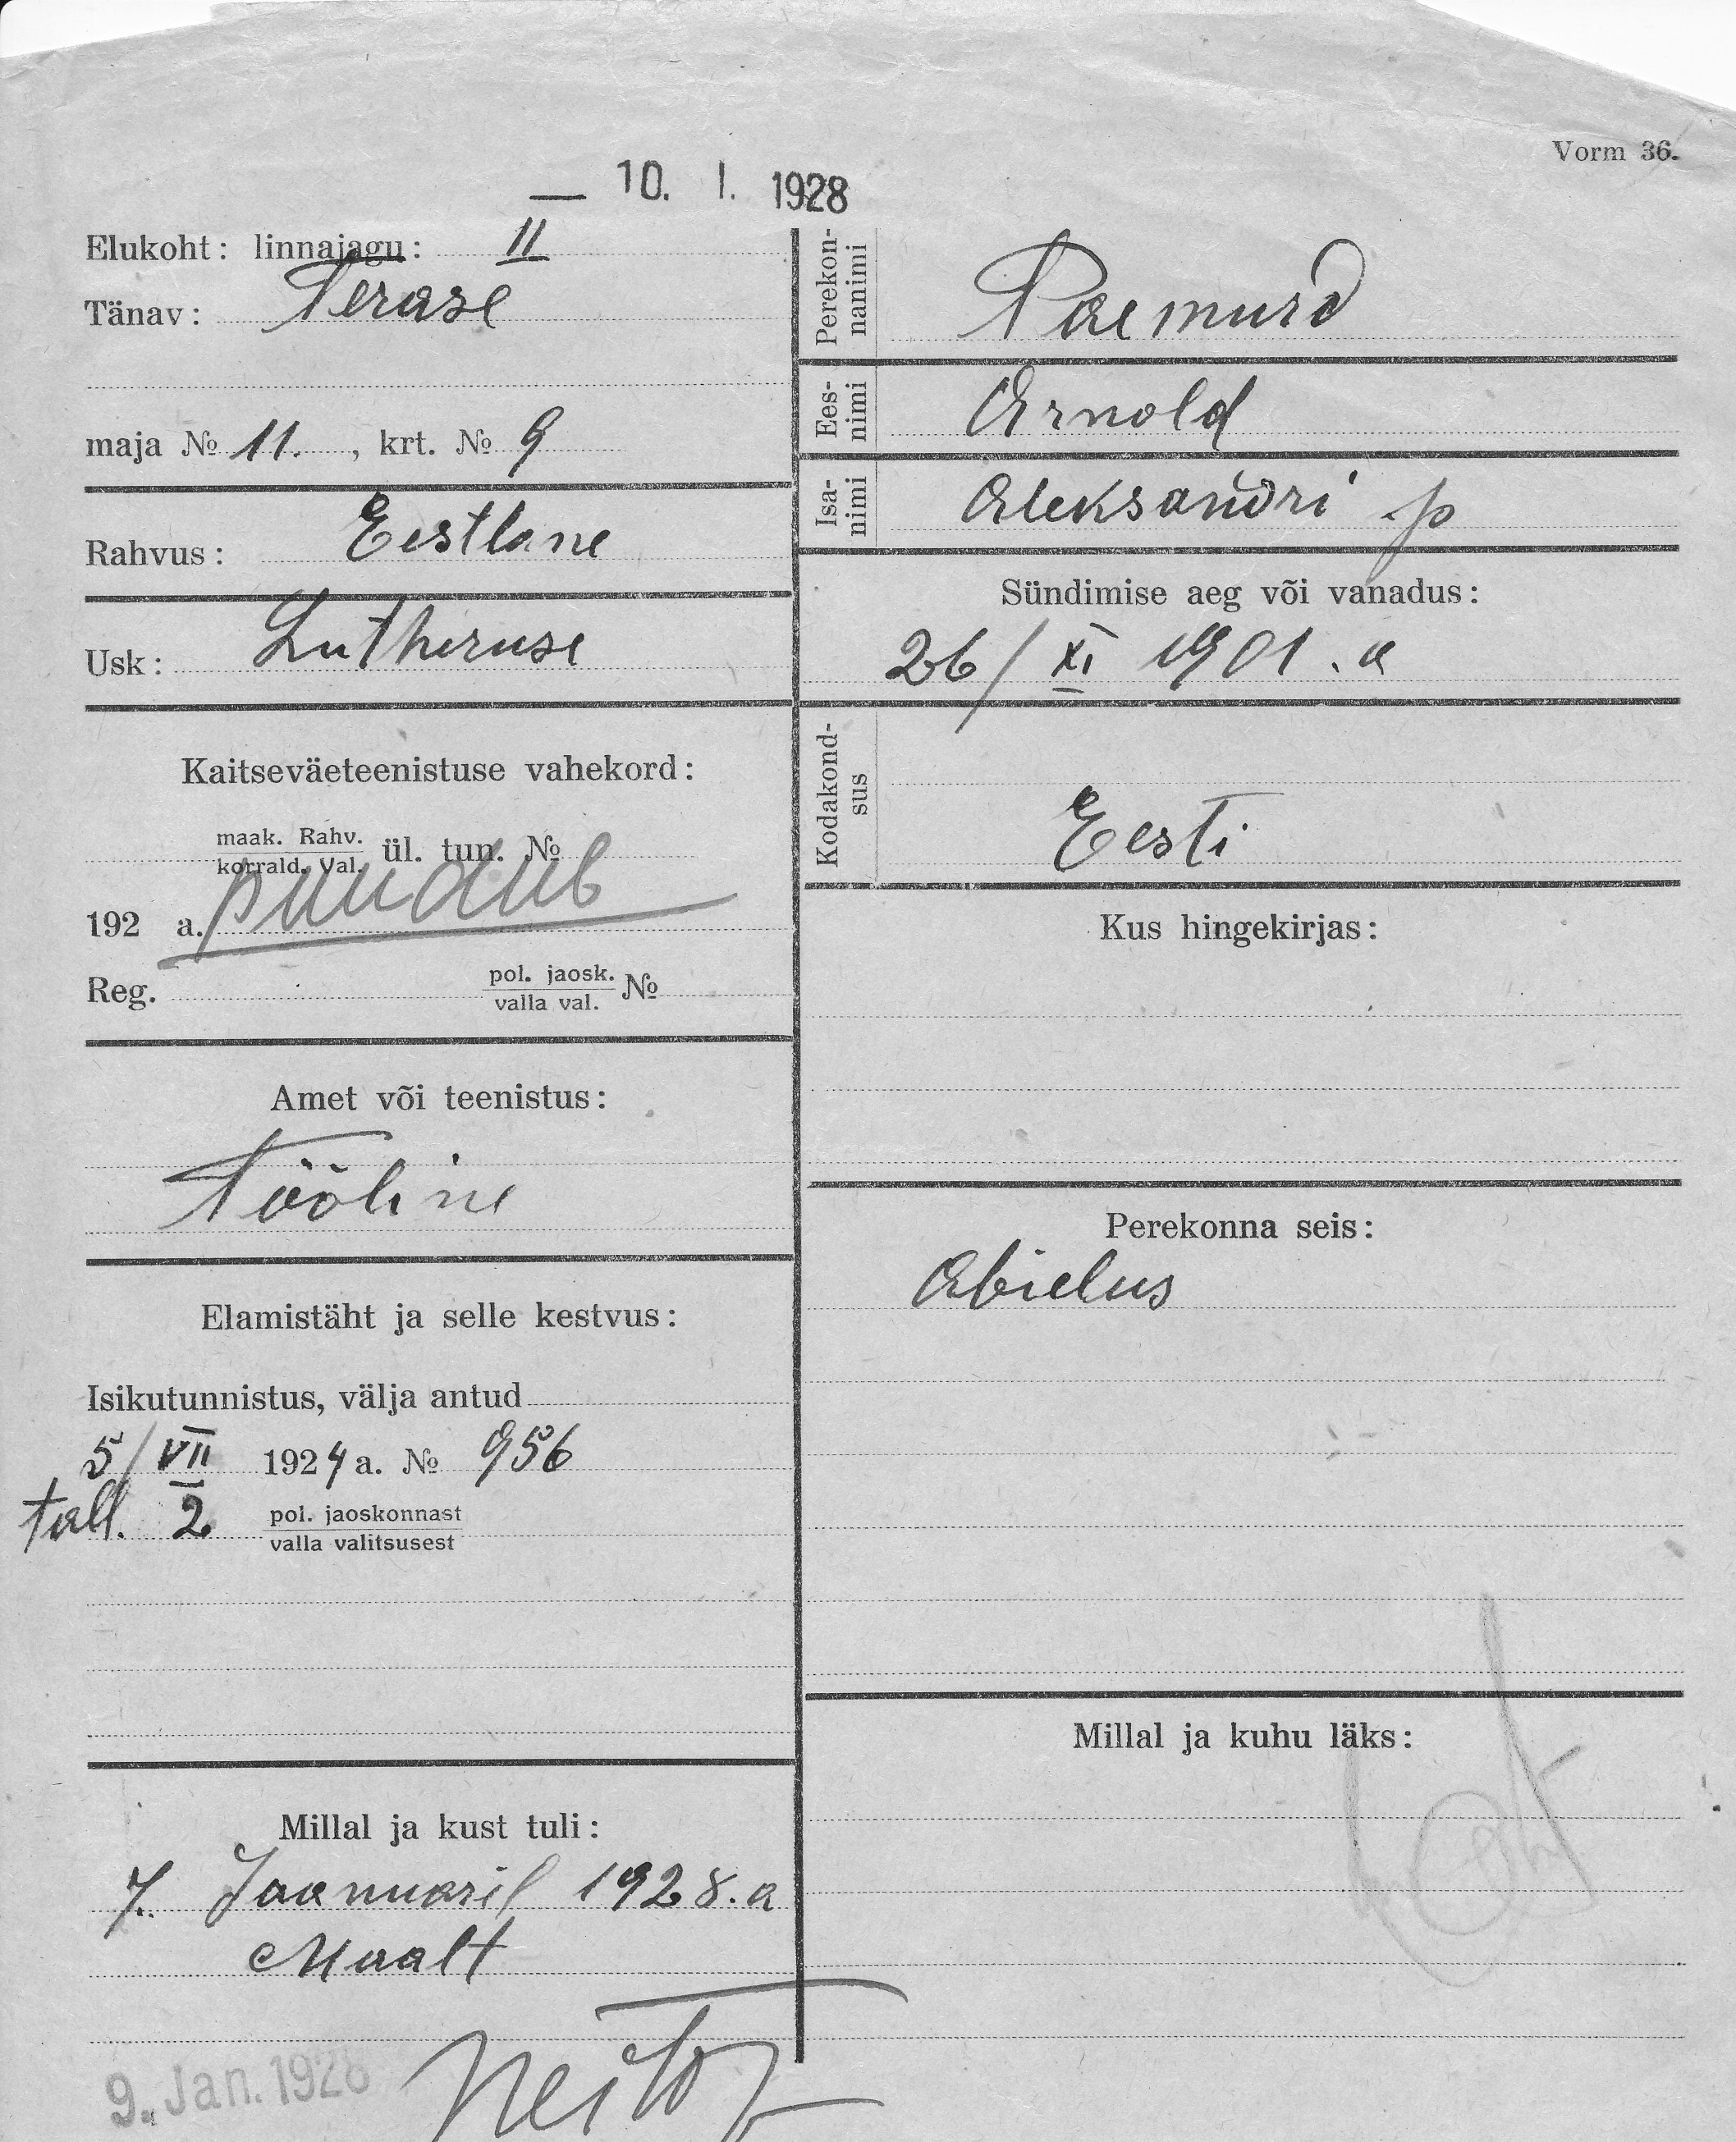 Vorm 36.
— 10. I. 1928
Elukoht: linnajagu: II
Tänav: Terase
maja № 11. , krt. № 9
Rahvus: Eestlane
Usk: Lutheruse
Kaitseväeteenistuse vahekord:
maak. Rahv.
korrald. Val. ül. tun. №
puudub
192 a.
Reg. pol. jaosk.
valla val. №
Amet või teenistus:
Tööline
Elamistäht ja selle kestvus:
Isikutunnistus, välja antud
5/VII 1924 a. № 956
tall. 2 pol. jaoskonnast
valla valitsusest
Millal ja kust tuli:
7. Jaanuaril 1928. a
Maalt
9. Jan. 1928
Perekon-
nanimi
Paemurd
Ees-
nimi
Arnold
Isa-
nimi
Aleksandri p
Sündimise aeg või vanadus:
26/XI 1901. a
Kodakond-
sus
Eesti
Kus hingekirjas:
Perekonna seis:
Abielus
Millal ja kuhu läks: